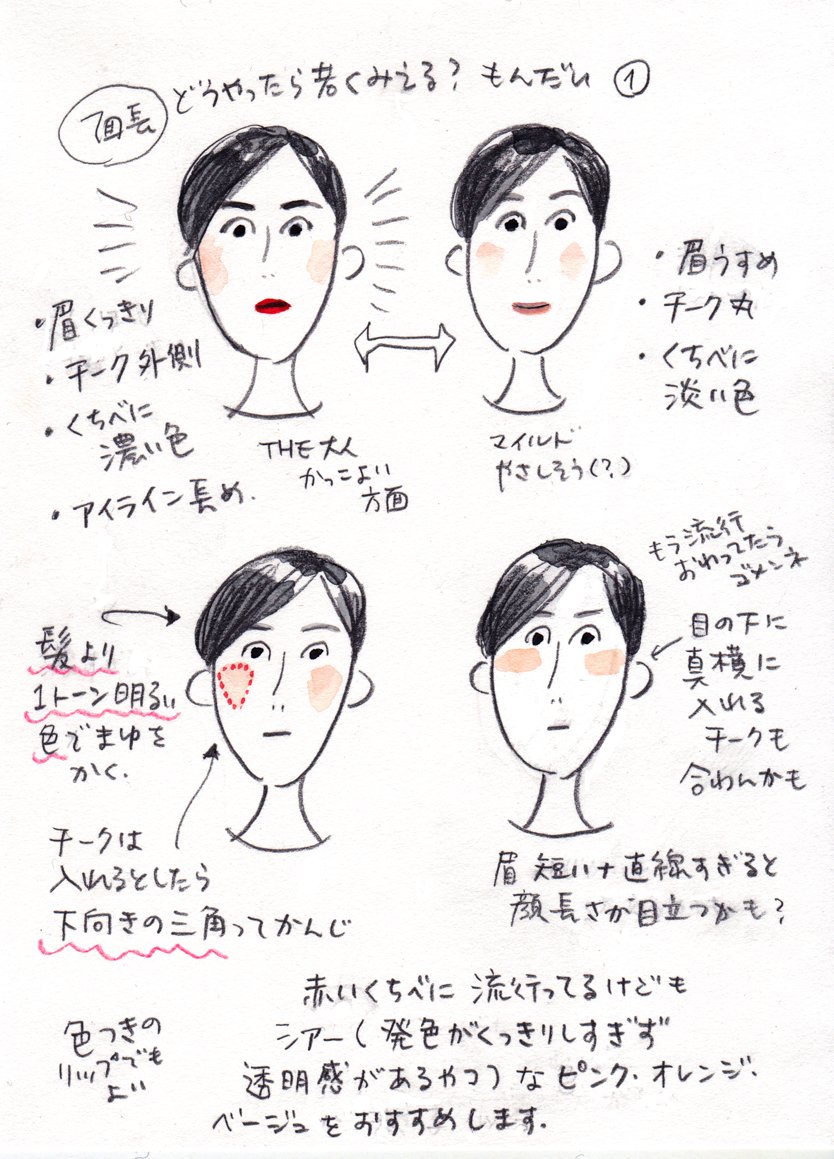 面長
どうやったら若くみえる? もんだい ①
・眉くっきり
・チーク外側
・くちべに
濃い色
・アイライン長め.
THE大人
かっこよい
方面
・眉うすめ
・チーク丸
・くちべに
淡い色
マイルド
やさしそう(?)
髪より
1トーン明るい
色でまゆを
かく.
チークは
入れるとしたら
下向きの三角ってかんじ
もう流行
おわってたら
ゴメンネ
目の下に
真横に
入れる
チークも
合わんかも
眉短い+直線すぎると
顔長さが目立つかも?
色つきの
リップでも
よい
赤いくちべに 流行ってるけども
シアー(発色がくっきりしすぎず
透明感があるやつ)なピンク・オレンジ・
ベージュをおすすめします.